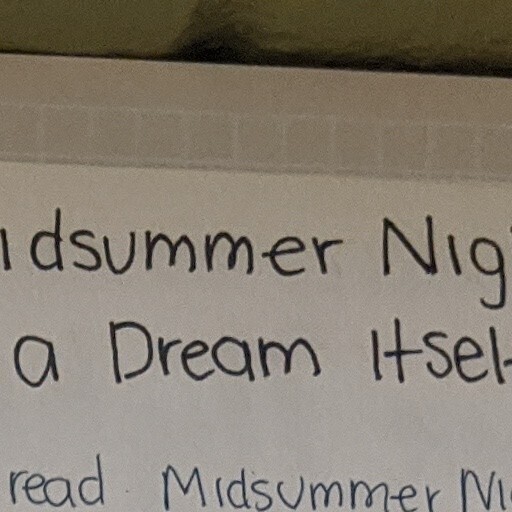 idsummer Nig
a Dream Itsel
read Midsummer Ni